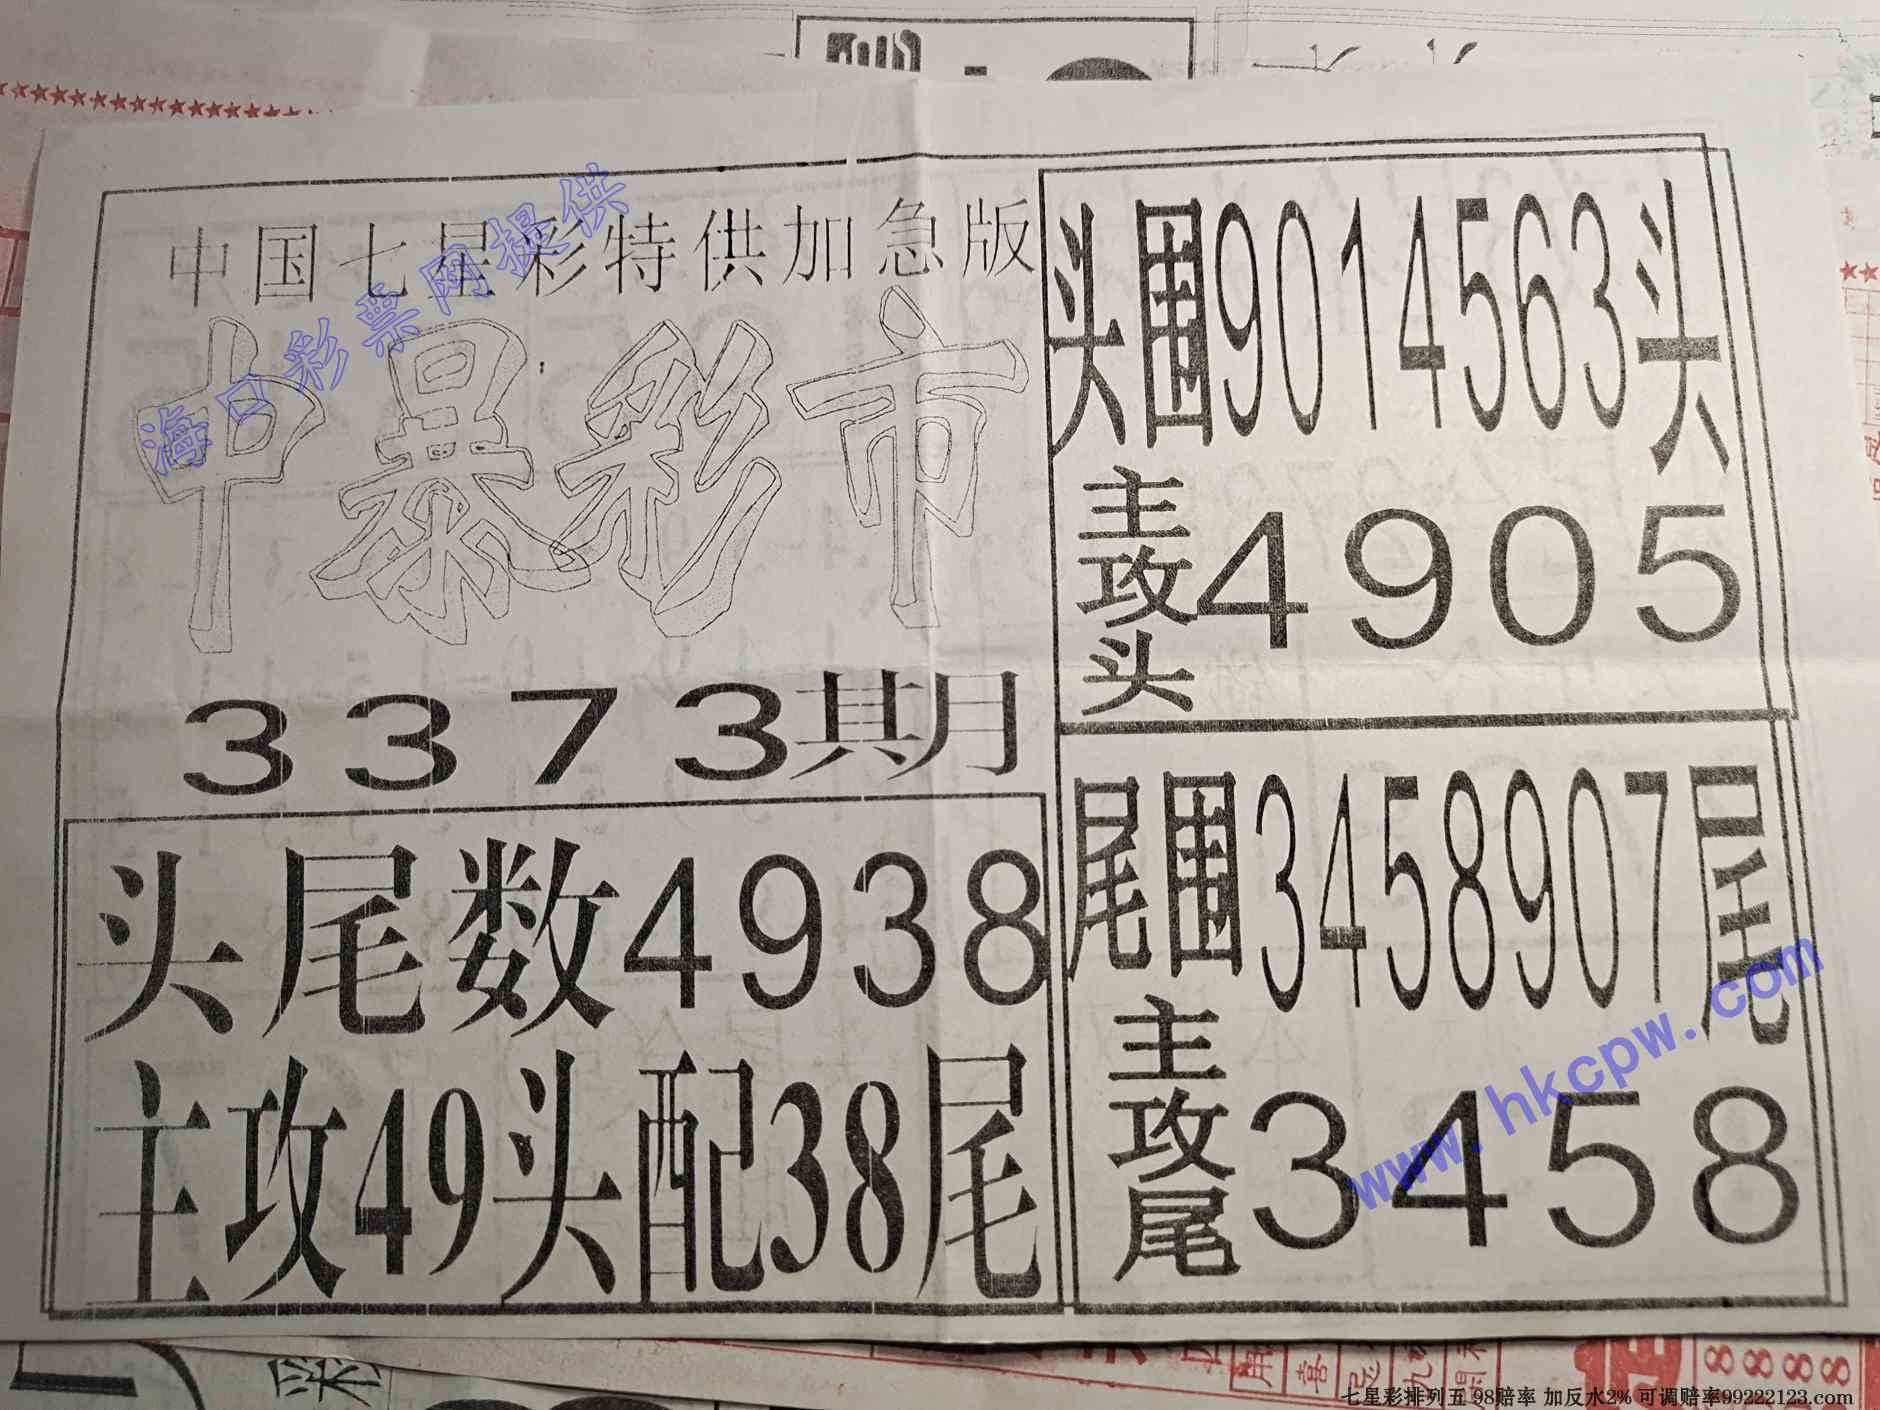 中国七星彩特供加急版
中暴彩市
3373期
头尾数4938
主攻49头配38尾
头围9014563头
主攻头4905
尾围3458907尾
主攻尾3458
海口彩票网提供
www.hkcpw.com
七星彩排列五 98赔率 加反水2% 可调赔率99222123.com